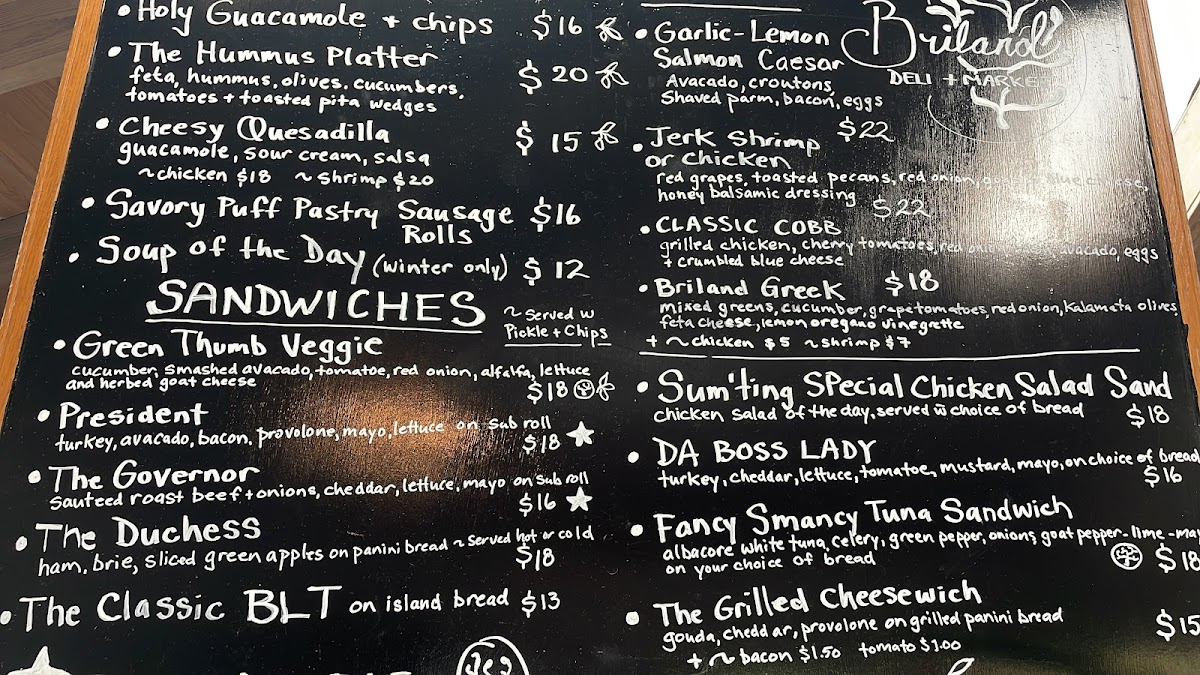 • Holy Guacamole + chips $16
• The Hummus Platter $20
feta, hummus, olives, cucumbers,
tomatoes + toasted pita wedges
• Cheesy Quesadilla $15
guacamole, sour cream, salsa
~chicken $18 ~shrimp $20
• Savory Puff Pastry Sausage $16
Rolls
• Soup of the Day (winter only) $12
SANDWICHES
~ Served w
Pickle + Chips
• Green Thumb Veggie
cucumber, smashed avacado, tomatoe, red onion, alfalfa, lettuce
and herbed goat cheese
$18
• President
turkey, avacado, bacon, provolone, mayo, lettuce on sub roll
$18
• The Governor
sauteed roast beef + onions, cheddar, lettuce, mayo on sub roll
$16
• The Duchess
ham, brie, sliced green apples on panini bread ~ served hot or cold
$18
• The Classic BLT on island bread $13
Briland
DELI + MARKET
• Garlic-Lemon
Salmon Caesar
Avacado, croutons,
Shaved parm, bacon, eggs
$22
• Jerk Shrimp
or chicken
red grapes, toasted pecans, red onion,
honey balsamic dressing
$22
• CLASSIC COBB
grilled chicken, cherry tomatoes, red avacado, eggs
+ crumbled blue cheese
• Briland Greek $18
mixed greens, cucumber, grape tomatoes, red onion, Kalamata olives,
feta cheese, lemon oregano vinegrette
+ ~ chicken $5 ~shrimp $7
• Sum'ting SPecial Chicken Salad Sand
chicken salad of the day, served w choice of bread
$18
• DA BOSS LADY
turkey, cheddar, lettuce, tomatoe, mustard, mayo, on choice of bread
$16
• Fancy Smancy Tuna Sandwich
albacore white tuna, celery, green pepper, onions, goat pepper-lime-may
on your choice of bread
$18
• The Grilled Cheesewich
gouda, cheddar, provolone on grilled panini bread
$15
+ ~ bacon $1.50 tomato $1.00